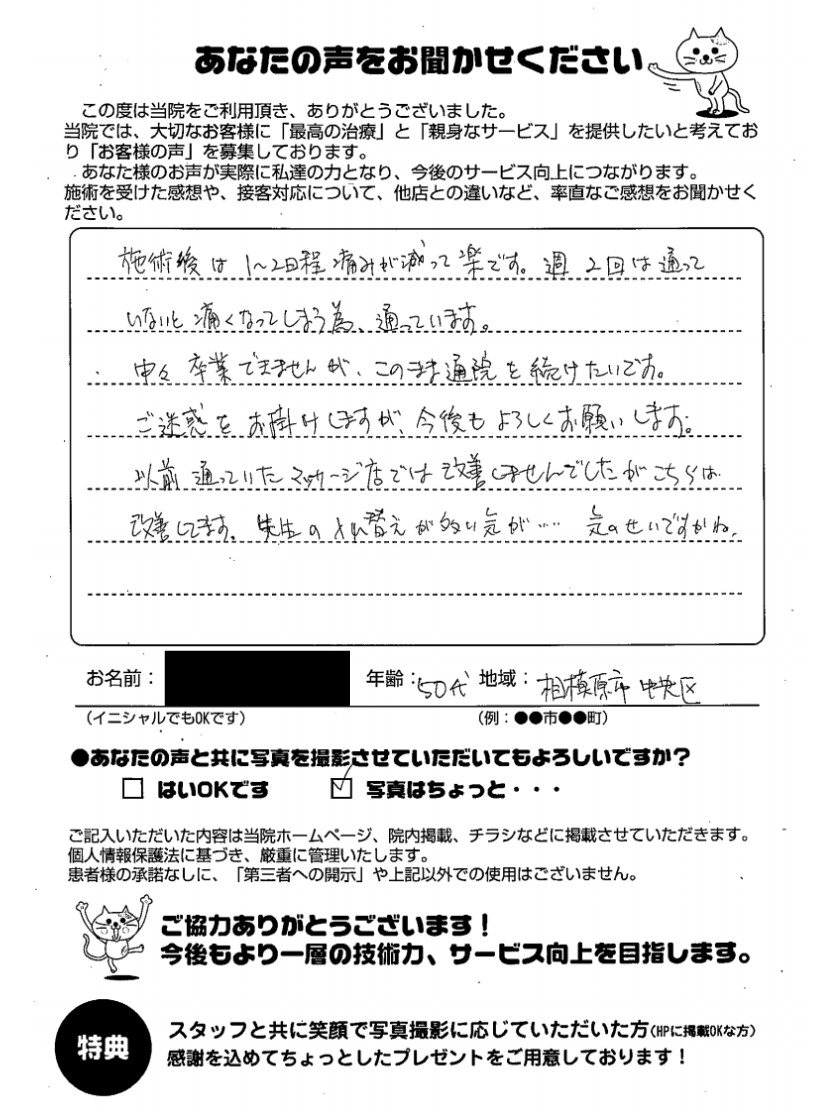 あなたの声をお聞かせください
この度は当院をご利用頂き、ありがとうございました。
当院では、大切なお客様に「最高の治療」と「親身なサービス」を提供したいと考えてお
り「お客様の声」を募集しております。
あなた様のお声が実際に私達の力となり、今後のサービス向上につながります。
施術を受けた感想や、接客対応について、他店との違いなど、率直なご感想をお聞かせく
ださい。
施術後は 1〜2日程 痛みが減って楽です。週2回は通って
いないと痛くなってしまう為、通っています。
中々 卒業できませんが、このまま通院を続けたいです。
ご迷惑をお掛けしますが、今後もよろしくお願いします。
以前通っていたマッサージ店では改善しませんでしたがこちらは
改善してます。先生の入れ替えが多い気が…… 気のせいですかね。
お名前：
年齢：50代 地域：相模原市 中央区
（イニシャルでもOKです）
（例：●●市●●町）
●あなたの声と共に写真を撮影させていただいてもよろしいですか？
□ はいOKです ☑ 写真はちょっと・・・
ご記入いただいた内容は当院ホームページ、院内掲載、チラシなどに掲載させていただきます。
個人情報保護法に基づき、厳重に管理いたします。
患者様の承諾なしに、「第三者への開示」や上記以外での使用はございません。
ご協力ありがとうございます！
今後もより一層の技術力、サービス向上を目指します。
特典
スタッフと共に笑顔で写真撮影に応じていただいた方（HPに掲載OKな方）
感謝を込めてちょっとしたプレゼントをご用意しております！